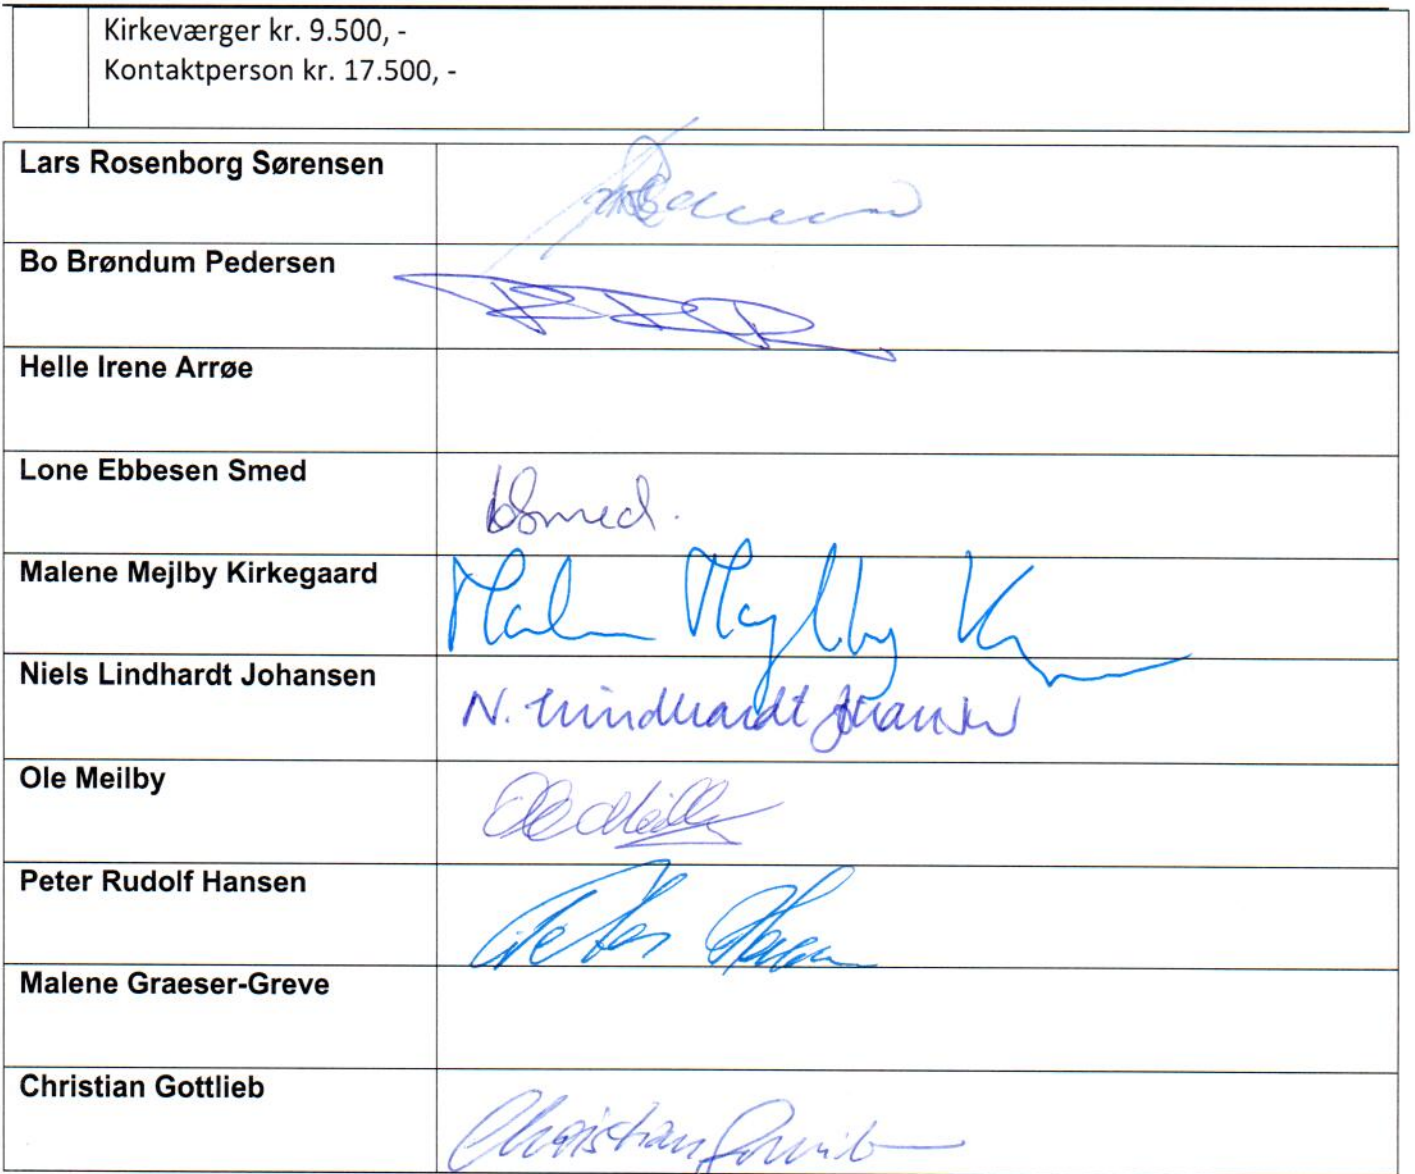 Kirkeværger kr. 9.500, -
Kontaktperson kr. 17.500, -
Lars Rosenborg Sørensen
Bo Brøndum Pedersen
Helle Irene Arrøe
Lone Ebbesen Smed
Smed.
Malene Mejlby Kirkegaard
Niels Lindhardt Johansen
N. Lindhardt Johansen
Ole Meilby
Peter Rudolf Hansen
Peter Hansen
Malene Graeser-Greve
Christian Gottlieb
Christian